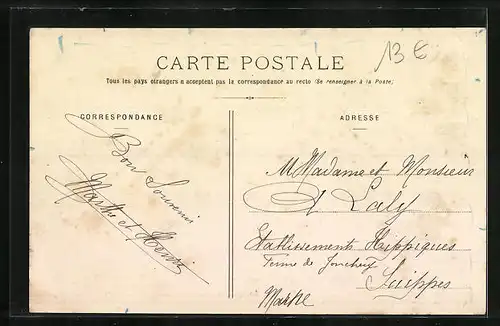 CARTE POSTALE
13 €
Tous les pays étrangers n'acceptent pas la correspondance au recto (Se renseigner à la Poste)
CORRESPONDANCE
Bon Souvenir
Marthe et
ADRESSE
Madame et Monsieur
Laly
Etablissements Hippiques
Ferme de Joncheux
Suippes
Marne